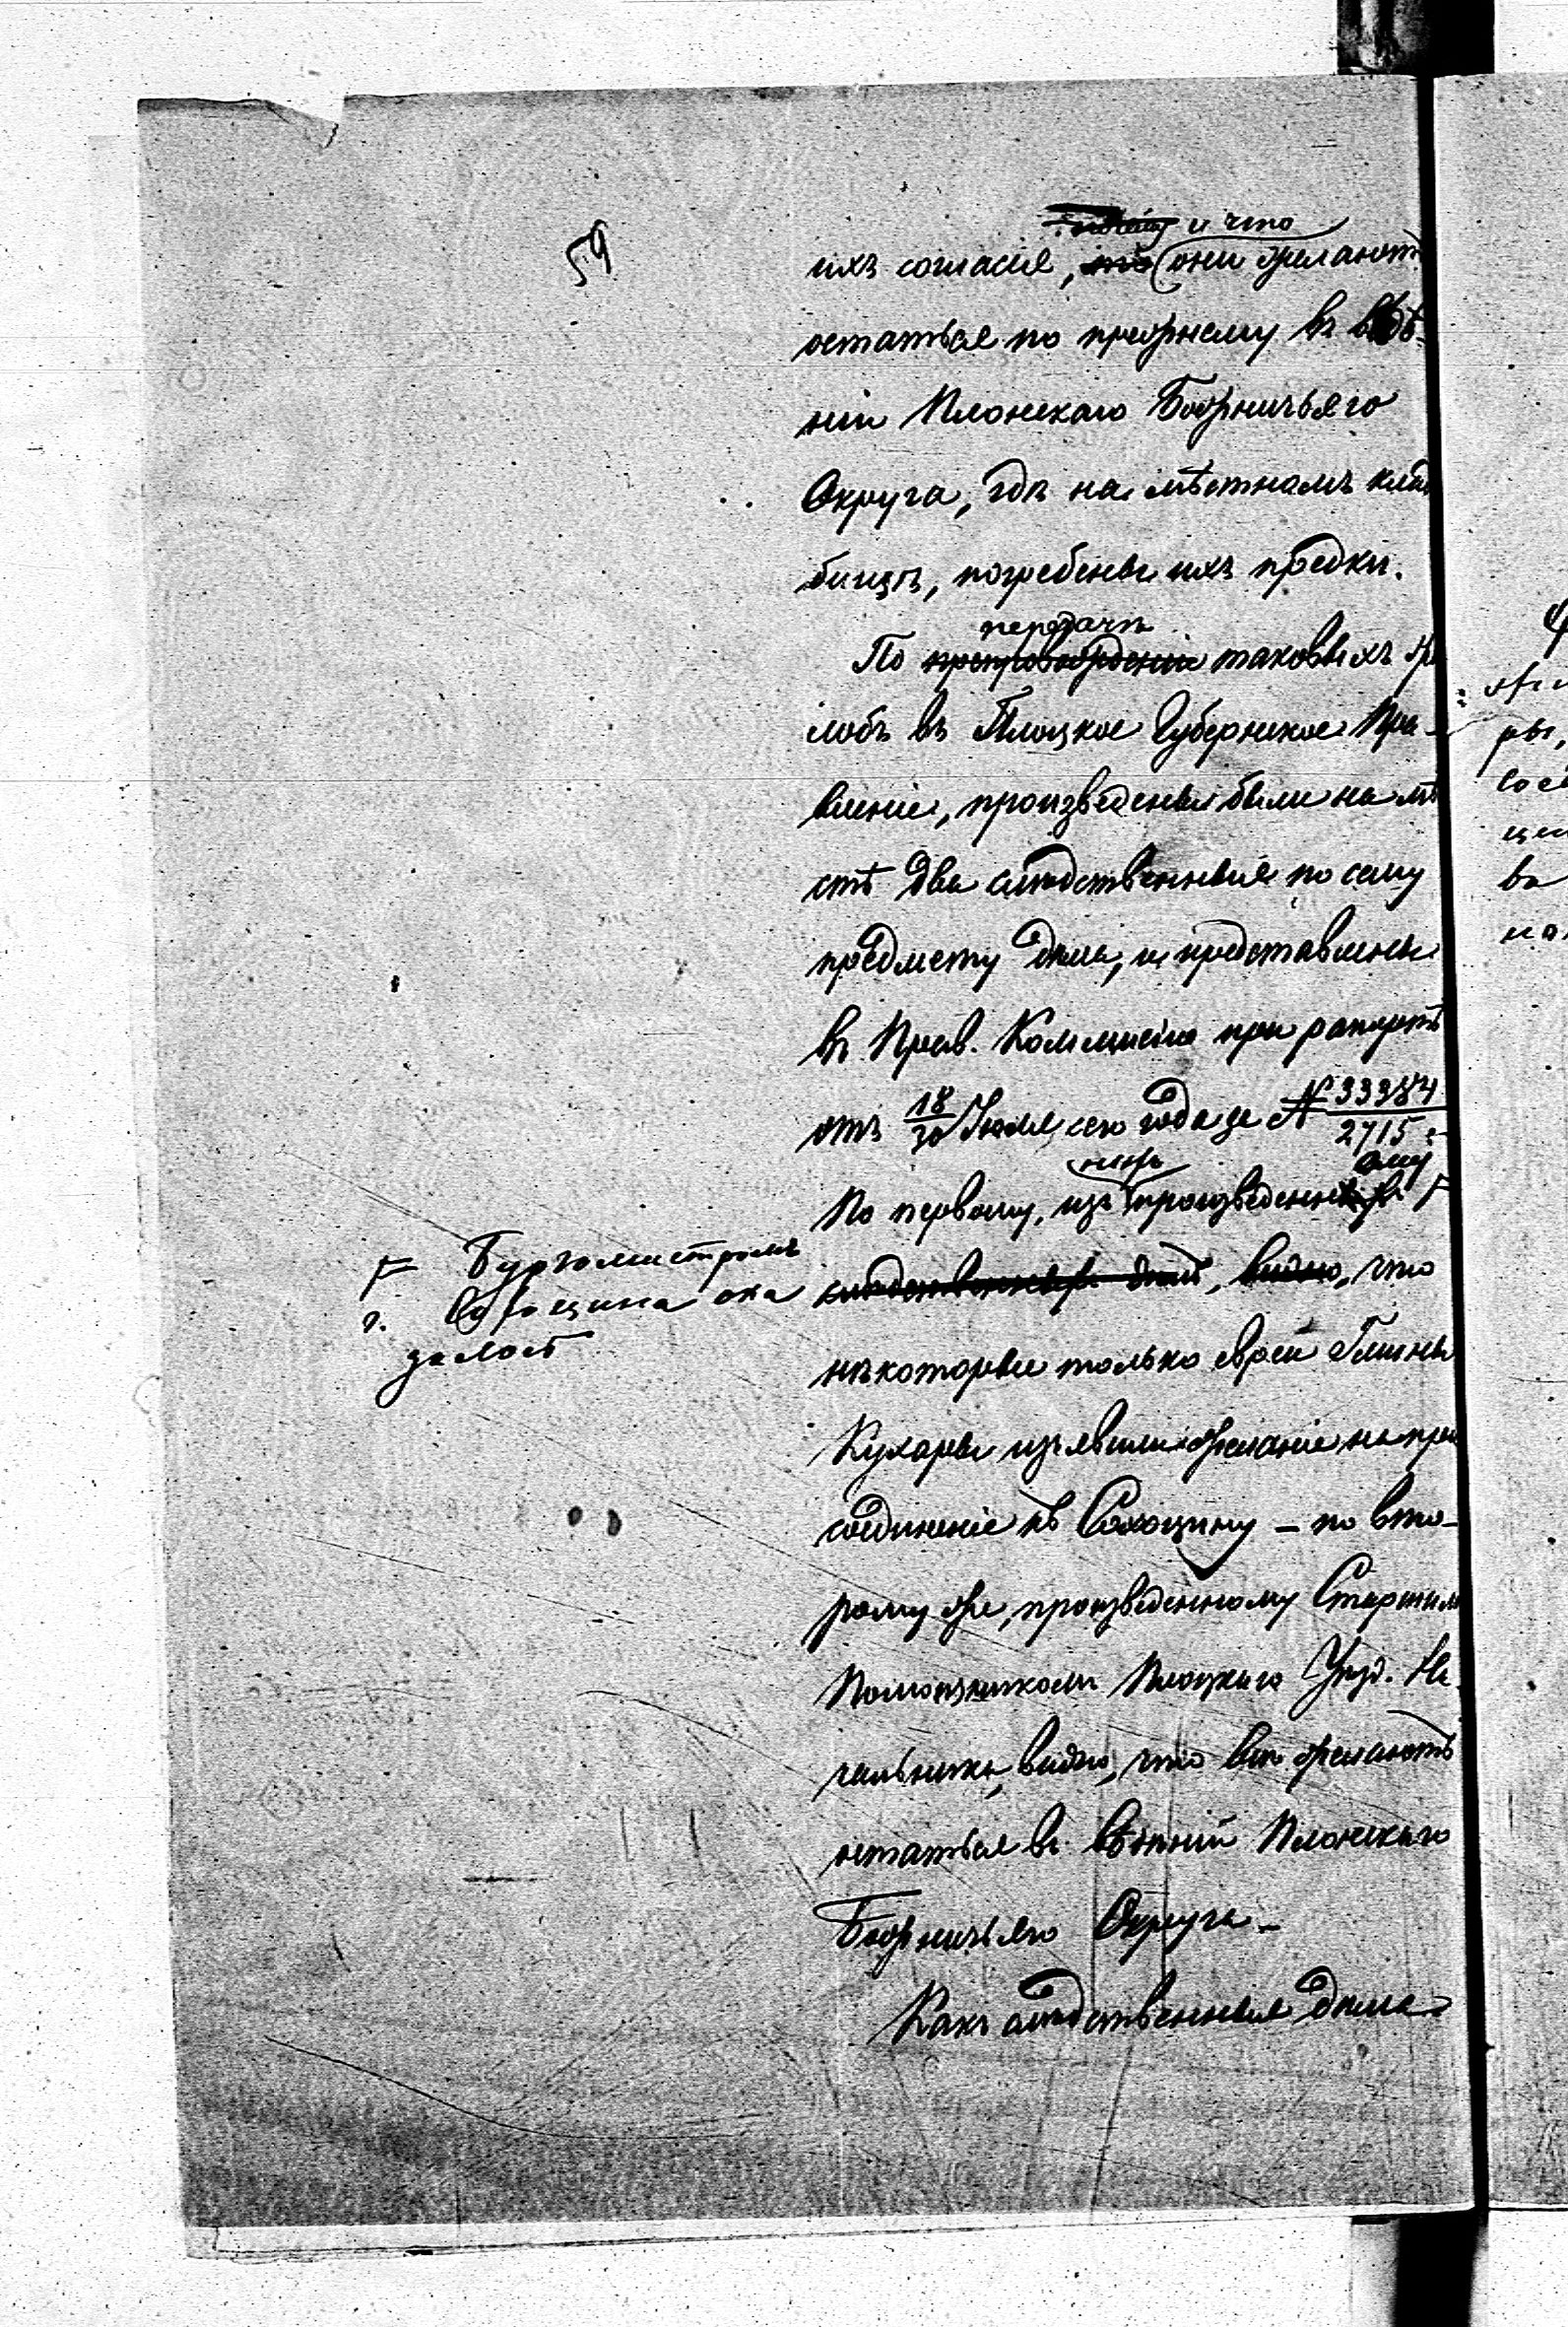 59
и что
ихъ согласія, они желаютъ
остаться по прежнему въ вѣдѣ-
ніи Плонскаго Божничьяго
Округа, гдѣ на мѣстномъ клад
бищѣ, погребены ихъ предки.
передачѣ
По препровожденіи таковыхъ жа
лобъ въ Плоцкое Губернское Пра-
вленіе, произведены были на мѣ
стѣ два слѣдственныя по сему
предмету дѣла, и представлены
въ Прав. Коммисію при рапортѣ
отъ 18/30 Іюля сего года за № 33384/2715:
нихъ ому
По первому, изъ произведенн
F Бургомистромъ
г. Сохоцина ока
залось
слѣдственныхъ дѣлъ, видно, что
нѣкоторые только евреи Гмины
Кухары изъявили желаніе на при
соединеніе къ Сохоцину – по вто-
рому же, произведенному Старшимъ
Помощникомъ Плоцкаго Уѣзд. На
чальника, видно, что всѣ желаютъ
остаться въ вѣдѣніи Плонскаго
Божничьяго Округа –
Какъ слѣдственныя дѣла